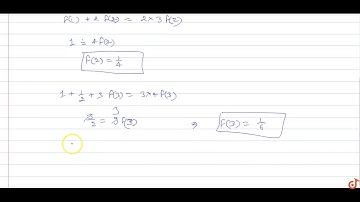 f(1) + 2 f(2) = 2×3 f(2)
1 = 4f(2)
f(2) = 1/4
1 + 1/2 + 3 f(3) = 3×4 f(3)
= f(3) ⇒ f(3) = 1/6